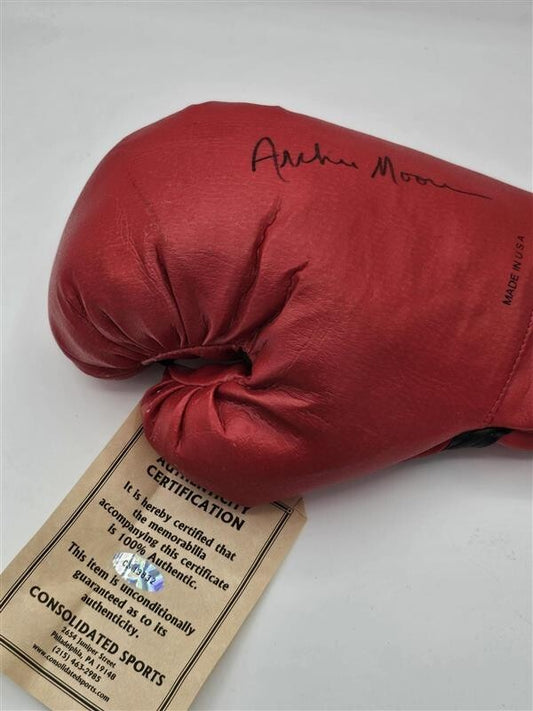 Archie Moore
MADE IN U.S.A
AUTHENTICITY
CERTIFICATION
It is hereby certified that
the memorabilia
accompanying this certificate
is 100% Authentic.
This item is unconditionally
guaranteed as to its
authenticity.
CONSOLIDATED SPORTS
2654 Juniper Street
Philadelphia, PA 19148
(215) 463-2985
www.consolidatedsports.com